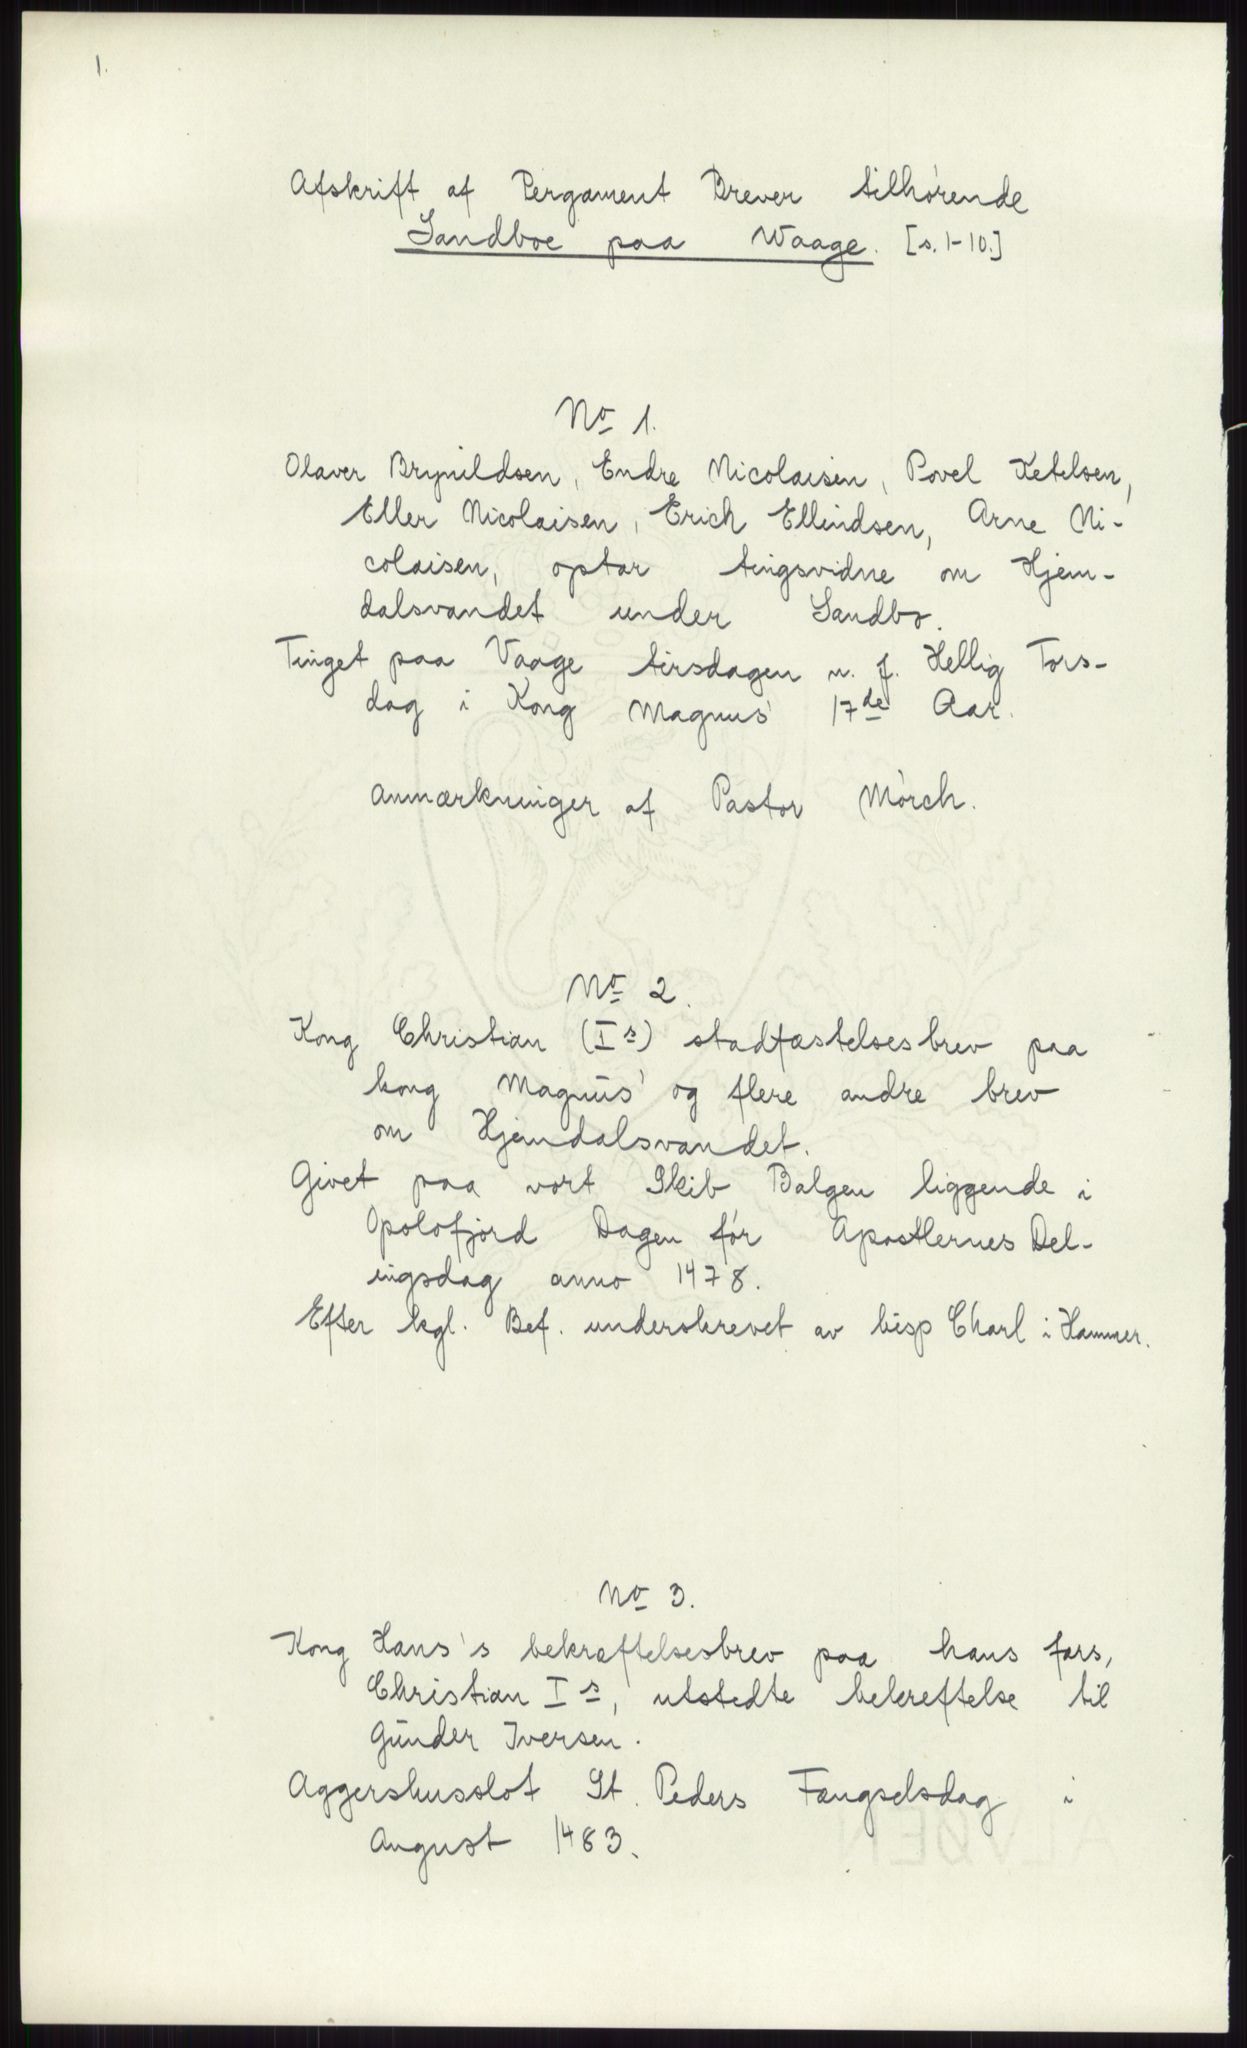 1.
Afskrift af Pergament Brever tilhørende
Sandboe paa Waage. [s. 1-10.]
No 1.
Olaver Brynildsen, Endre Nicolaisen, Povel Ketelsen,
Eller Nicolaisen, Erich Ellindsen, Arne Ni-
colaisen, optar tingsvidne om Hjem-
dalsvandet under Sandbo.
Tinget paa Vaage tirsdagen n. f. Hellig Tors-
dag i Kong Magnus' 17de Aar.
Anmærkninger af Pastor Mørch.
No 2.
Kong Christian (Is) stadfæstelsesbrev paa
kong Magnus' og flere andre brev
om Hjemdalsvandet.
Givet paa vort Skib Balgen liggende i
Opslofjord Dagen før Apostlernes Del-
ingsdag anno 1478.
Efter kgl. Bef. underskrevet av bisp Charl i Hammer.
No 3.
Kong Hans's bekræftelsesbrev paa hans fars,
Christian Is, utstedte bekreftelse til
Gunder Iversen.
Aggershusslot St. Peders Fængselsdag i
August 1483.